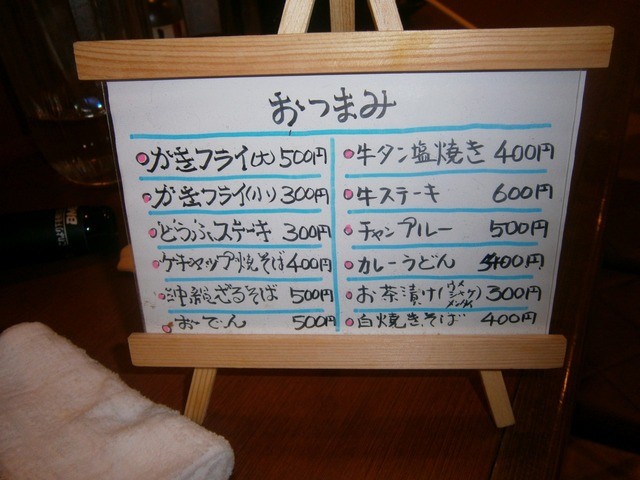 おつまみ
かきフライ(大) 500円
かきフライ(小) 300円
とうふステーキ 300円
ケチャップ焼そば 400円
沖縄ざるそば 500円
おでん 500円
牛タン塩焼き 400円
牛ステーキ 600円
チャンプルー 500円
カレーうどん 400円
お茶漬け(ウメ シャケ メンタイ) 300円
白焼きそば 400円